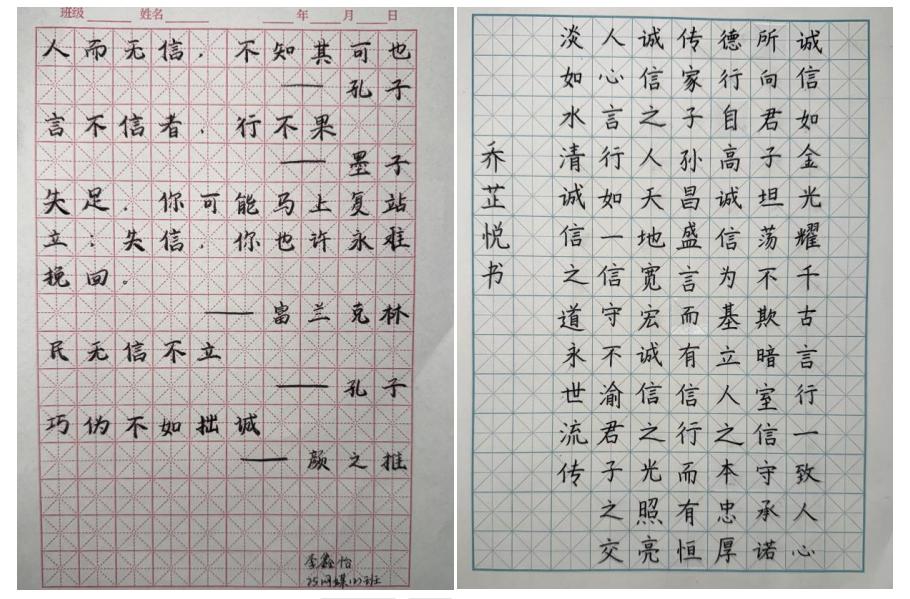 班级 姓名 年 月 日
人而无信，不知其可也
——孔子
言不信者，行不果
——墨子
失足，你可能马上复站
立；失信，你也许永难
挽回。
——富兰克林
民无信不立
——孔子
巧伪不如拙诚
——颜之推
李鑫怡
25网媒(1)班
诚信如金光耀千古言行一致人心
所向君子坦荡不欺暗室信守承诺
德行自高诚信为基立人之本忠厚
传家子孙昌盛言而有信行而有恒
诚信之人天地宽宏诚信之光照亮
人心言行如一信守不渝君子之交
淡如水清诚信之道永世流传
乔芷悦书